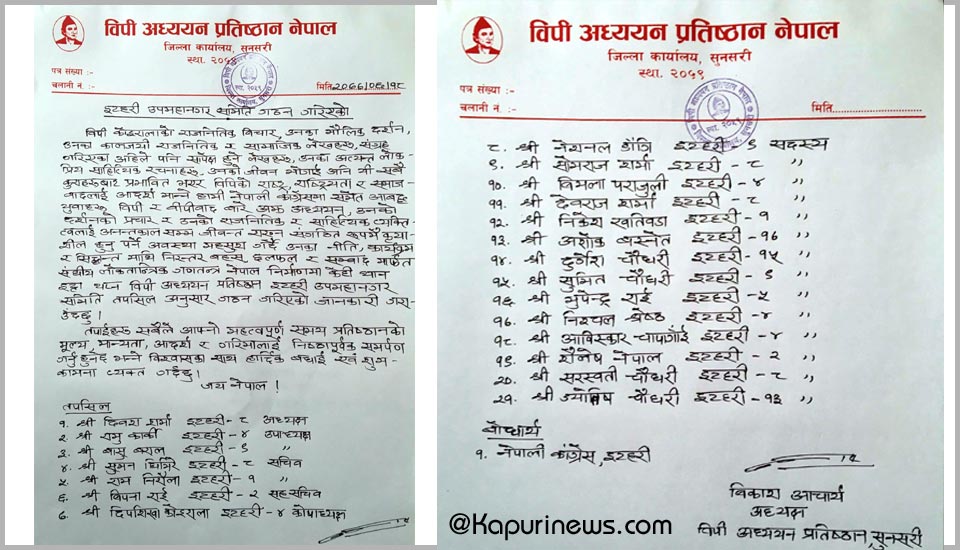 विपी अध्ययन प्रतिष्ठान नेपाल
जिल्ला कार्यालय, सुनसरी
स्था. २०५९
पत्र संख्या :-
चलानी नं. :-
मिति
इटहरी उपमहानगर समिति गठन गरिएको
विपी कोइरालाका राजनितिक विचार, उनका मौलिक दर्शन,
उनका कालजयी राजनितिक र सामाजिक लेखहरु, संग्रह
गरिएका अहिले पनि सापेक्ष हुने लेखहरु, उनका अत्यन्त लोक-
प्रिय साहित्यिक रचनाहरु, उनको जीवन भोगाई अनि यी सबै
कुराहरुबाट प्रभावित भएर विपिको राष्ट्र, राष्ट्रियता र समाज-
वादलाई आदर्श मान्ने हामी नेपाली कांग्रेसमा समेत आबद्ध
युवाहरु विपी र वीपीवाद बारे अझ अध्ययन, उनको
दर्शनको प्रचार र उनको राजनितिक र साहित्यिक व्यक्ति-
त्वलाई अनन्तकाल सम्म जीवन्त राख्न संगठित रुपमै क्रिया-
शील हुनु पर्ने अवस्था महसुश गर्दै उनका नीति, कार्यक्रम
र सिद्धान्त माथि निरन्तर बहस, छलफल र सम्बाद मार्फत
संघीय लोकतान्त्रिक गणतन्त्र नेपाल निर्माणमा केही थोप
इट्टा थप्न विपी अध्ययन प्रतिष्ठान इटहरी उपमहानगर
समिति तपसिल अनुसार गठन गरिएको जानकारी गरा-
उँदछु ।
तपाईहरु सबैले आफ्नो महत्वपूर्ण समय प्रतिष्ठानको
मूल्य, मान्यता, आदर्श र गरिमालाई निष्ठापूर्वक समर्पण
गर्नु हुनेछ भन्ने विश्वासका साथ हार्दिक बधाई एवं शुभ-
कामना व्यक्त गर्दछु ।
जय नेपाल !
तपसिल
१. श्री शर्मा इटहरी - ८ अध्यक्ष
२. श्री रामु कार्की इटहरी - ४ उपाध्यक्ष
३. श्री बासु बराल इटहरी - ६ "
४. श्री सुमन घिमिरे इटहरी - ८ सचिव
५. श्री राम निरौला इटहरी - १ "
६. श्री विपना राई इटहरी - २ सह सचिव
७. श्री दिपशिखा कोइराला इटहरी - ४ कोषाध्यक्ष
विपी अध्ययन प्रतिष्ठान नेपाल
जिल्ला कार्यालय, सुनसरी
स्था. २०५९
पत्र संख्या :-
चलानी नं. :-
मिति
८. श्री नेशनल इटहरी - ६ सदस्य
९. श्री खेमराज शर्मा इटहरी - ८ "
१०. श्री विमला पराजुली इटहरी - ४ "
११. श्री देवराज शर्मा इटहरी - ८ "
१२. श्री निकेश खतिवडा इटहरी - १ "
१३. श्री अशोक बस्नेत इटहरी - १६ "
१४. श्री दुर्गेश चौधरी इटहरी - १५ "
१५. श्री सुमित चौधरी इटहरी - ६ "
१६. श्री भुपेन्द्र राई इटहरी - ५ "
१७. श्री निश्चल श्रेष्ठ इटहरी - ४ "
१८. श्री आविस्कार चापागाँई इटहरी - ४ "
१९. श्री शैलेष नेपाल इटहरी - २ "
२०. श्री सरस्वती चौधरी इटहरी - ८ "
२१. श्री ज्योतिष चौधरी इटहरी - १३ "
बोधार्थ
१. नेपाली कांग्रेस, इटहरी
विकाश आचार्य
अध्यक्ष
विपी अध्ययन प्रतिष्ठान, सुनसरी
@Kapurinews.com